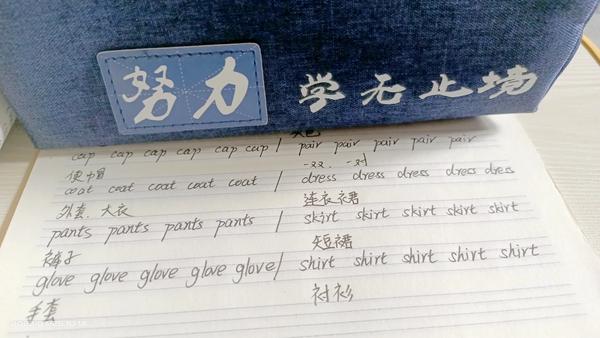 努力 学无止境
cap cap cap cap cap cap / pair pair pair pair pair
便帽 一双、一对
coat coat coat coat coat / dress dress dress dress
外套、大衣 连衣裙
pants pants pants pants / skirt skirt skirt skirt skirt
裤子 短裙
glove glove glove glove glove / shirt shirt shirt shirt shirt
手套 衬衫